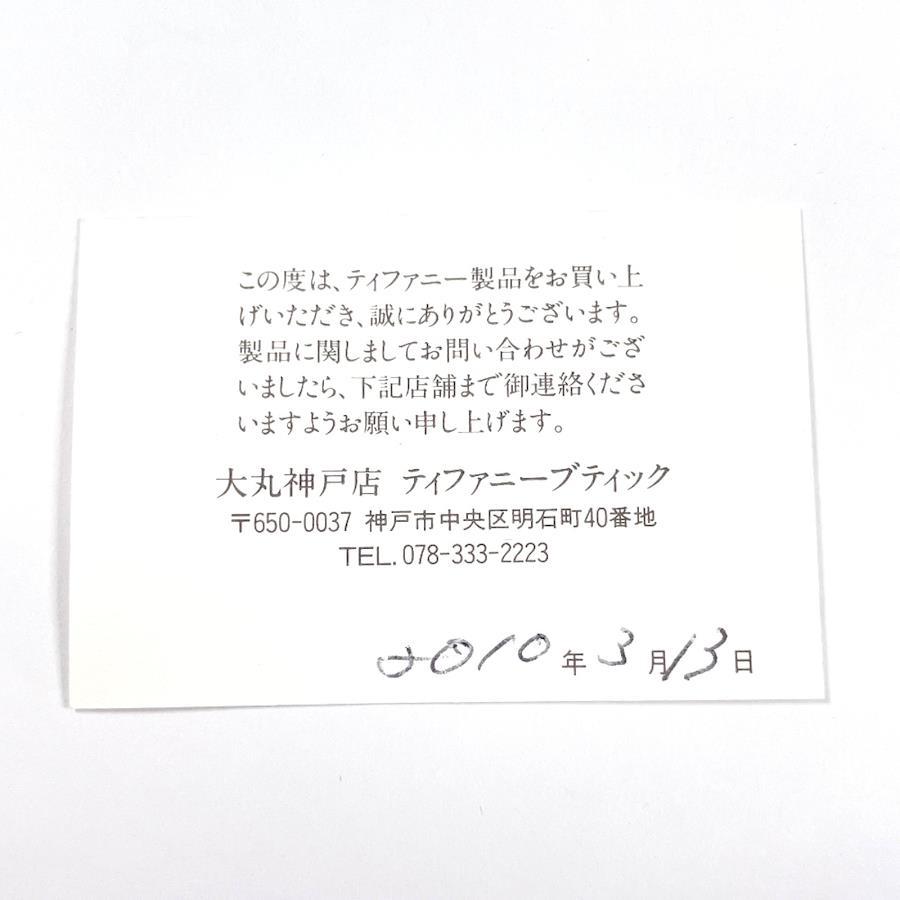 この度は、ティファニー製品をお買い上
げいただき、誠にありがとうございます。
製品に関しましてお問い合わせがござ
いましたら、下記店舗まで御連絡くださ
いますようお願い申し上げます。
大丸神戸店 ティファニーブティック
〒650-0037 神戸市中央区明石町40番地
TEL.078-333-2223
2010年3月13日